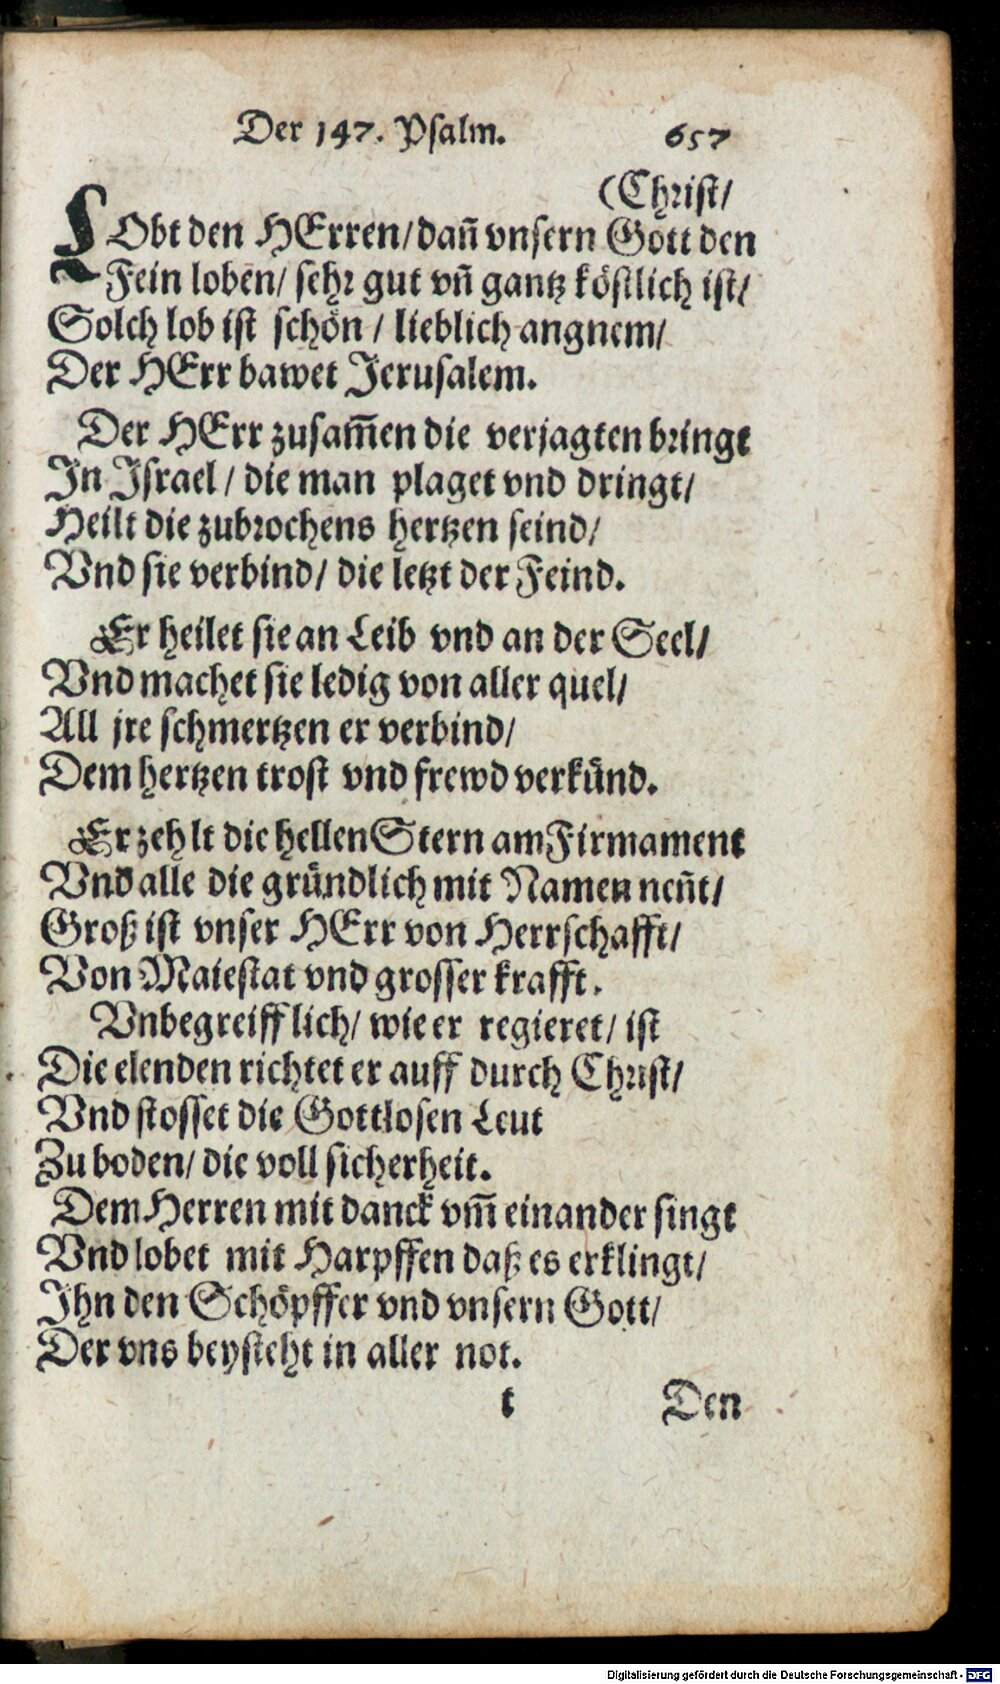 Der 147. Psalm. 657
(Christ/
LObt den HErren/ dañ vnsern Gott den
Fein loben/ sehr gut vñ gantz köstlich ist/
Solch lob ist schön / lieblich angnem/
Der HErr bawet Jerusalem.
Der HErr zusam̃en die verjagten bringt
In Israel / die man plaget vnd dringt/
Heilt die zubrochens hertzen seind/
Vnd sie verbind/ die letzt der Feind.
Er heilet sie an Leib vnd an der Seel/
Vnd machet sie ledig von aller quel/
All jre schmertzen er verbind/
Dem hertzen trost vnd frewd verkünd.
Er zehlt die hellen Stern am Firmament
Vnd alle die gründlich mit Namen neñt/
Groß ist vnser HErr von Herrschafft/
Von Maiestat vnd grosser krafft.
Vnbegreifflich/ wie er regieret/ ist
Die elenden richtet er auff durch Christ/
Vnd stosset die Gottlosen Leut
Zu boden/ die voll sicherheit.
Dem Herren mit danck vm̃ einander singt
Vnd lobet mit Harpffen daß es erklingt/
Ihn den Schöpffer vnd vnsern Gott/
Der vns beysteht in aller not.
t Den
Digitalisierung gefördert durch die Deutsche Forschungsgemeinschaft - DFG